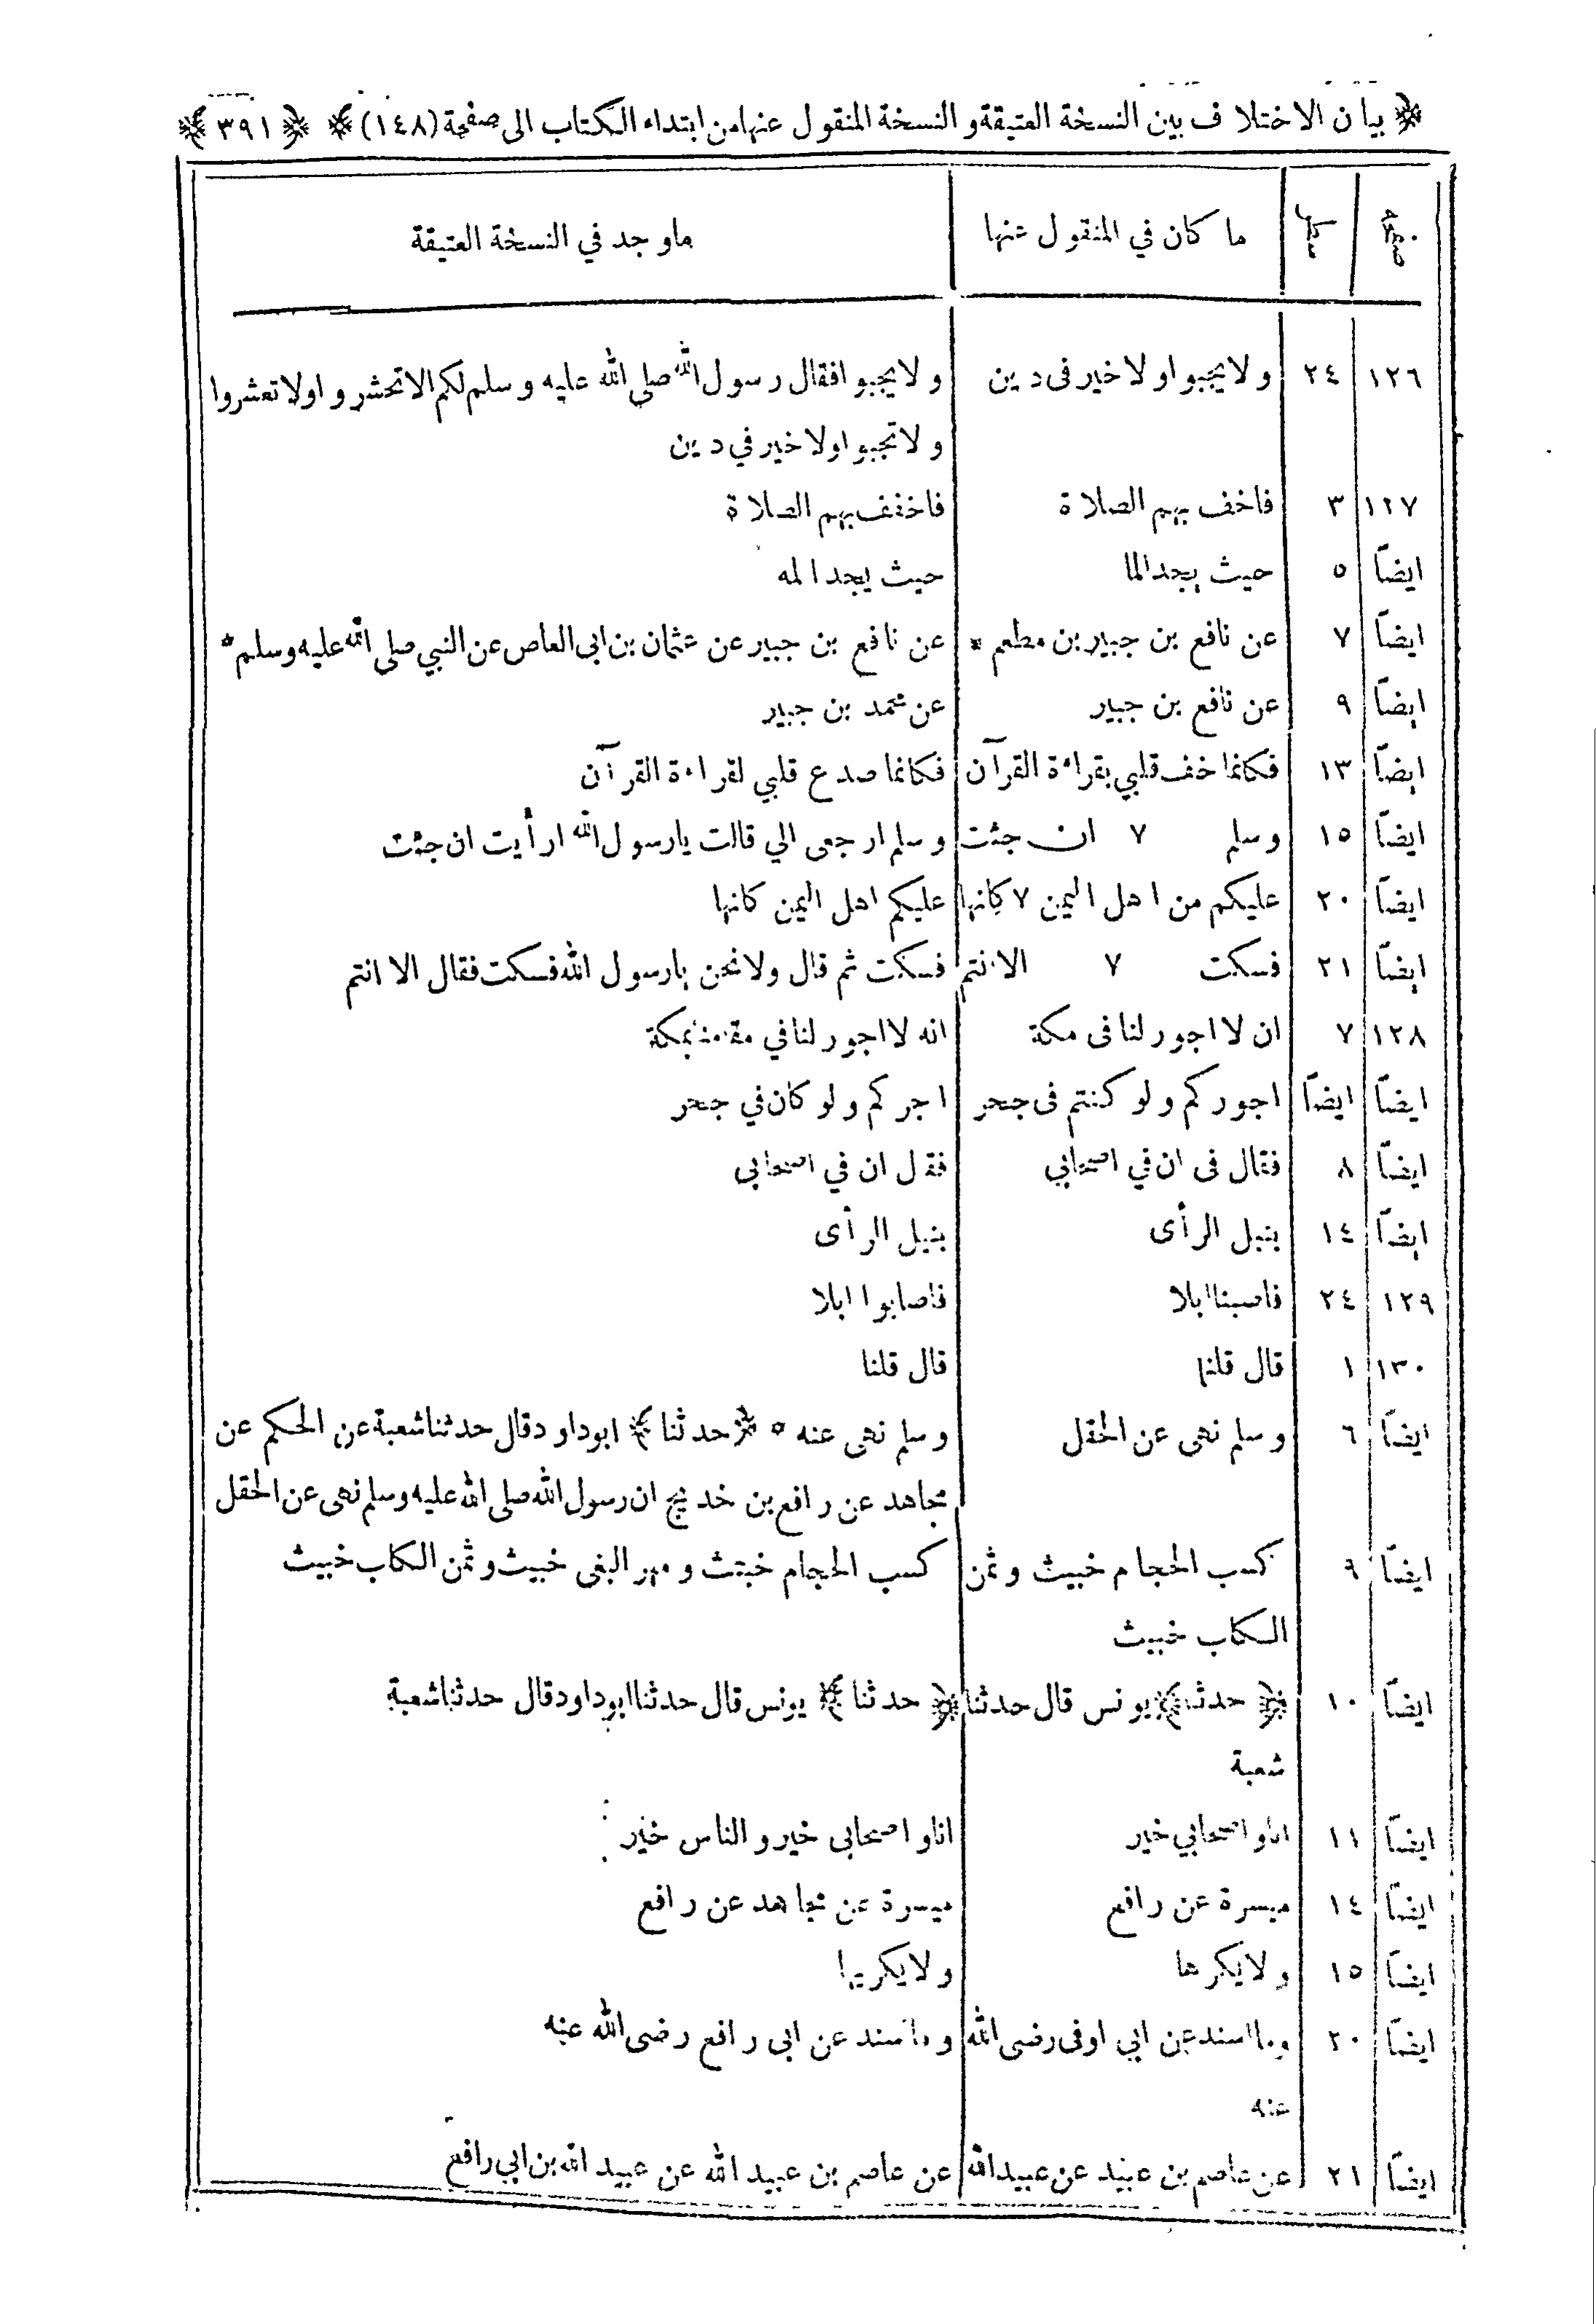 ﴿ بيان الاختلاف بين النسخة العتيقة و النسخة المنقول عنها من ابتداء الكتاب الى صفحة (١٤٨) ﴾ ﴿ ٣٩١ ﴾
صفحه سطر ما كان في المنقول عنها ما وجد في النسخة العتيقة
١٢٦ ٢٤ ولا يجبوا ولا خير فى دين ولا يجبوا فقال رسول الله صلى الله عليه وسلم لكم الا تحشروا ولا تعشروا
ولا تجبوا ولا خير في دين
١٢٧ ٣ فاخف بهم الصلاة فاخفف بهم الصلاة
ايضاً ٥ حيث يجد الما حيث يجد المه
ايضاً ٧ عن نافع بن جبير بن مطعم * عن نافع بن جبير عن عثمان بن ابى العاص عن النبي صلى الله عليه وسلم *
ايضاً ٩ عن نافع بن جبير عن محمد بن جبير
ايضاً ١٣ فكانما خف قلبي بقراءة القرآن فكانما صدع قلبي لقراءة القرآن
ايضاً ١٥ وسلم ٧ ان جئت وسلم ارجعى الي قالت يا رسول الله ارأيت ان جئت
ايضاً ٢٠ عليكم من اهل اليمن ٧ كانها عليكم اهل اليمن كانها
ايضاً ٢١ فسكت ٧ الا انتم فسكت ثم قال ولا نحن يا رسول الله فسكت فقال الا انتم
١٢٨ ٧ ان لا اجور لنا فى مكة انه لا اجور لنا في مقامنا بمكة
ايضاً ايضاً اجوركم ولو كنتم فى جحر اجركم ولو كان في جحر
ايضاً ٨ فقال فى ان في اصحابي فقال ان في اصحابى
ايضاً ١٤ بنبل الرأى بنبل الرأى
١٢٩ ٢٤ فاصبنا ابلا فاصابوا ابلا
١٣٠ ١ قال قلنا قال قلنا
ايضاً ٦ وسلم نهى عن الحقل وسلم نهى عنه ٥ ﴿ حدثنا ﴾ ابو داود قال حدثنا شعبة عن الحكم عن
مجاهد عن رافع بن خديج ان رسول الله صلى الله عليه وسلم نهى عن الحقل
ايضاً ٩ كسب الحجام خبيث وثمن كسب الحجام خبيث ومهر البغى خبيث وثمن الكلب خبيث
الكلب خبيث
ايضاً ١٠ ﴿ حدثنا ﴾ يونس قال حدثنا ﴿ حدثنا ﴾ يونس قال حدثنا ابو داود قال حدثنا شعبة
شعبة
ايضاً ١١ انا و اصحابي خير انا و اصحابى خير و الناس خير
ايضاً ١٤ ميسرة عن رافع ميسرة عن مجاهد عن رافع
ايضاً ١٥ ولا يكرها ولا يكريها
ايضاً ٢٠ وما اسند عن ابي اوفى رضى الله وما اسند عن ابى رافع رضى الله عنه
عنه
ايضاً ٢١ عن عاصم بن عبيد عن عبيد الله عن عاصم بن عبيد الله عن عبيد الله بن ابي رافع